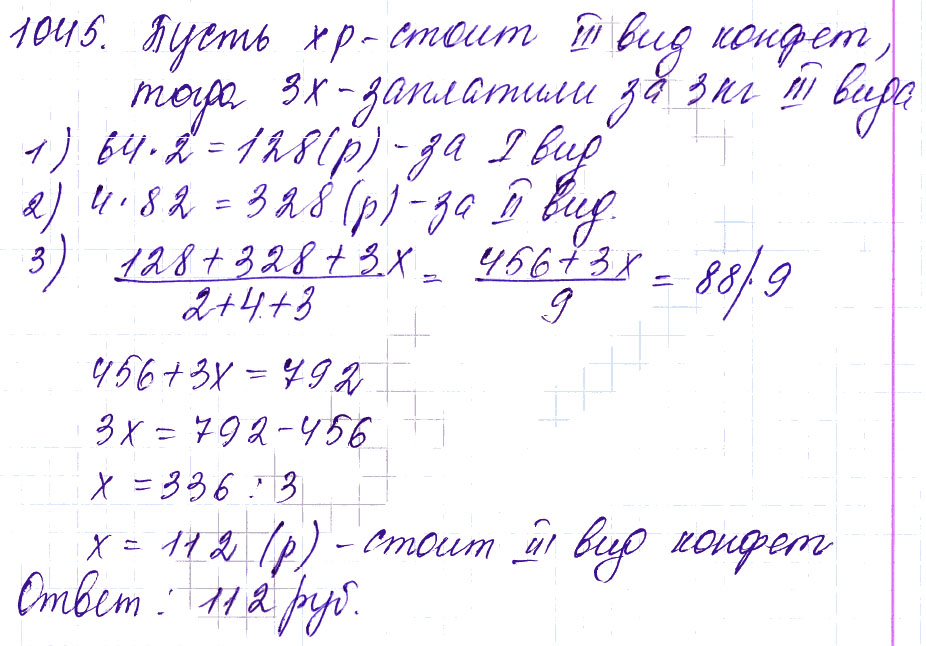 1045. Пусть x р-стоит III вид конфет,
тогда 3x-заплатили за 3кг III вида
1) 64·2=128(р)-за I вид
2) 4·82=328(р)-за II вид.
3) (128+328+3x)/(2+4+3) = (456+3x)/9 = 88/·9
456+3x=792
3x=792-456
x=336:3
x=112 (р)-стоит III вид конфет
Ответ: 112 руб.